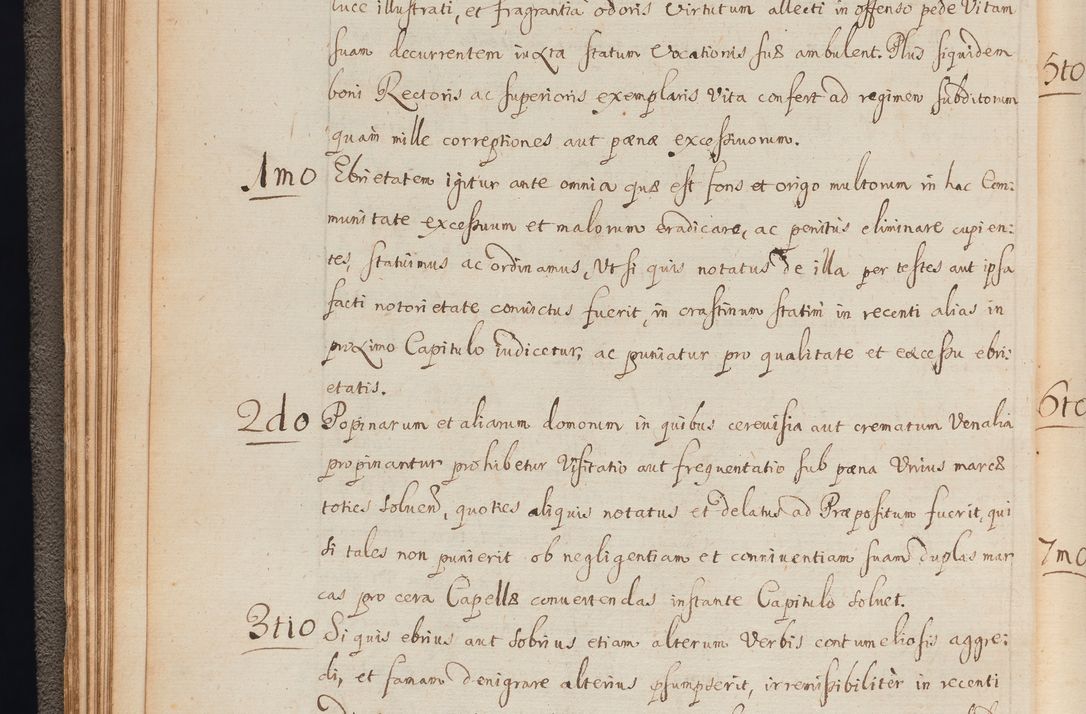 luce illustrati, et fragrantia odoris Virtutum allecti in offenso pede Vitam
suam decurrentem iuxta statum Vocationis suæ ambulent. Plus siquidem
boni Rectoris ac superioris exemplaris Vita confert ad regimen subditorum
quam mille correptiones aut pænæ excessivorum.
1mo Ebrietatem igitur ante omnia quæ est fons et origo multorum in hac Com:
munitate excessuum et malorum eradicare, ac penitùs eliminare cupien:
tes, statuimus ac ordinamus, Ut si quis notatus de illa per testes aut ipsa
facti notorietate convictus fuerit, in crastinum statim in recenti alias in
proximo Capitulo iudicetur, ac puniatur pro qualitate et excessu ebri:
etatis.
2do Popinarum et aliarum domorum in quibus cerevisia aut crematum Venalia
propinantur prohibetur Visitatio aut frequentatio sub pæna Unius marcæ
toties solven, quoties aliquis notatus et delatus ad Præpositum fuerit, qui
si tales non punierit ob negligentiam et conniventiam suam duplas mar
cas pro cera Capellæ convertendas instante Capitulo solvet.
3tio Si quis ebrius aut sobrius etiam alterum Verbis contumeliosis aggre:
di, et famam denigrare alterius psumpserit, irremisibilitèr in recenti
5to
6to
7mo